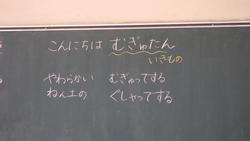 こんにちは むぎゅたん
いきもの
やわらかい むぎゅってする
ねん土の ぐしゃってする